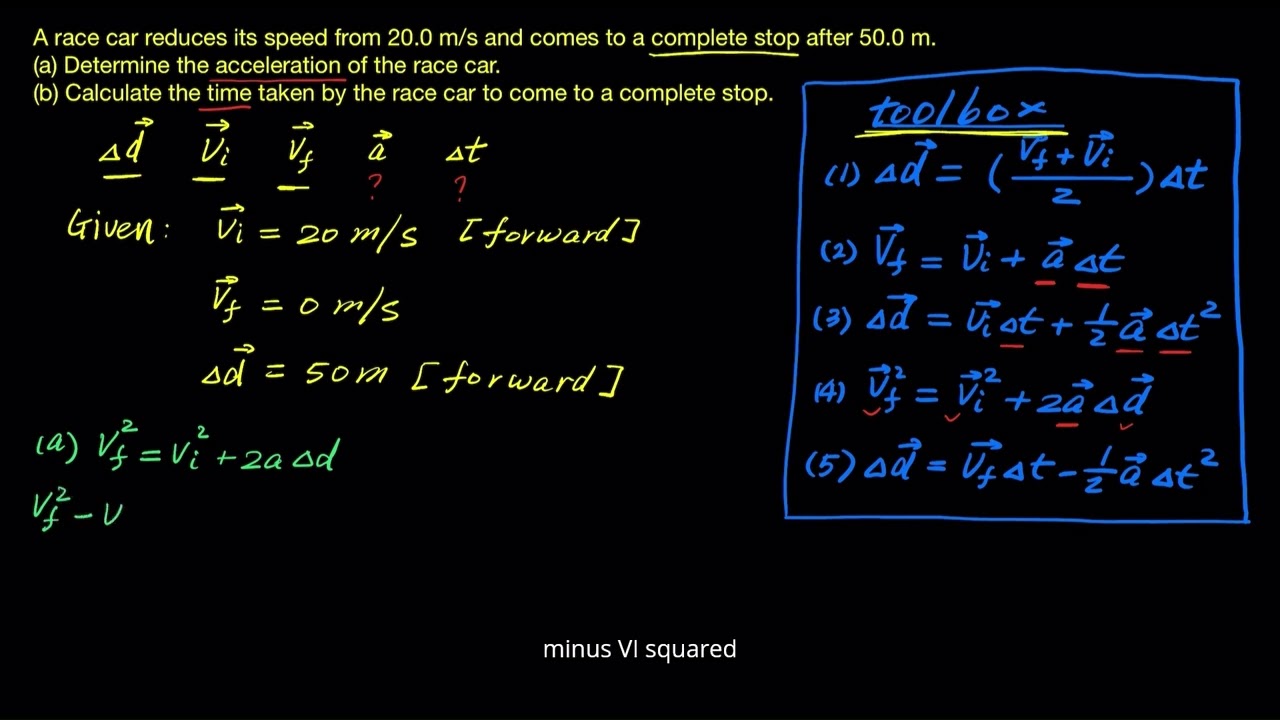 A race car reduces its speed from 20.0 m/s and comes to a complete stop after 50.0 m.
(a) Determine the acceleration of the race car.
(b) Calculate the time taken by the race car to come to a complete stop.
Δd⃗ v⃗i v⃗f a⃗ Δt
? ?
Given: v⃗i = 20 m/s [forward]
v⃗f = 0 m/s
Δd⃗ = 50m [forward]
(a) vf² = vi² + 2aΔd
vf² - v
toolbox
(1) Δd⃗ = (v⃗f + v⃗i / 2) Δt
(2) v⃗f = v⃗i + a⃗ Δt
(3) Δd⃗ = v⃗i Δt + 1/2 a⃗ Δt²
(4) v⃗f² = v⃗i² + 2a⃗ Δd⃗
(5) Δd⃗ = v⃗f Δt - 1/2 a⃗ Δt²
minus VI squared